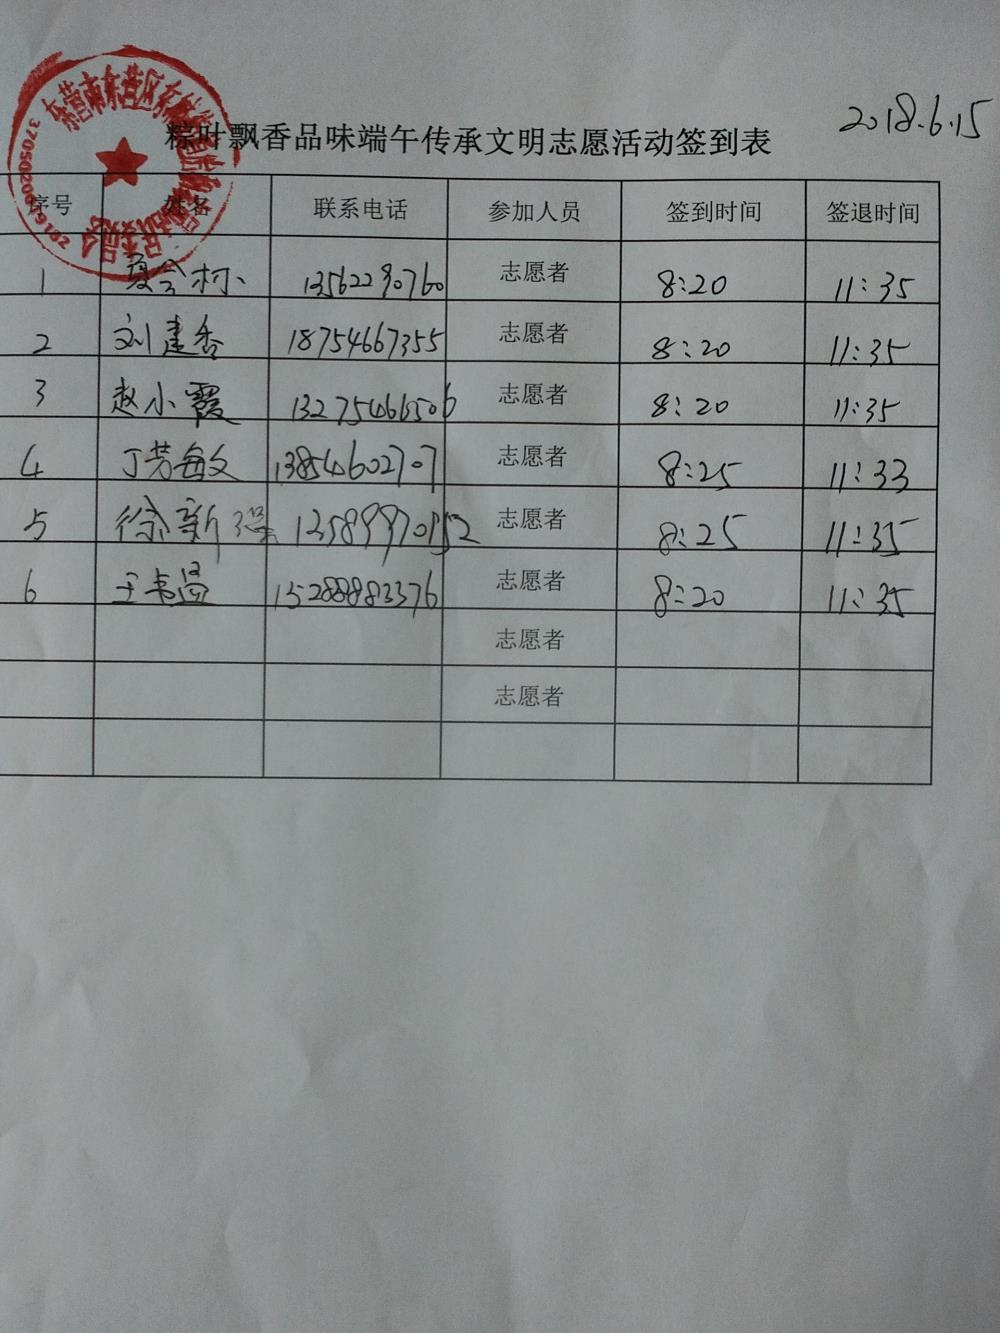 2018.6.15
粽叶飘香品味端午传承文明志愿活动签到表
序号 姓名 联系电话 参加人员 签到时间 签退时间
1 13562290760 志愿者 8:20 11:35
2 刘建香 18754667355 志愿者 8:20 11:35
3 赵小霞 13275466506 志愿者 8:20 11:35
4 丁芳敏 13854602707 志愿者 8:25 11:33
5 徐新强 13589970152 志愿者 8:25 11:35
6 15288883376 志愿者 8:20 11:35
志愿者
志愿者